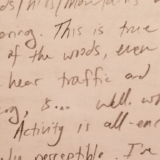 oring. This is true
of the woods, even
hear traffic and
ng, &... well, wh
Activity is all-en
perceptible. I've